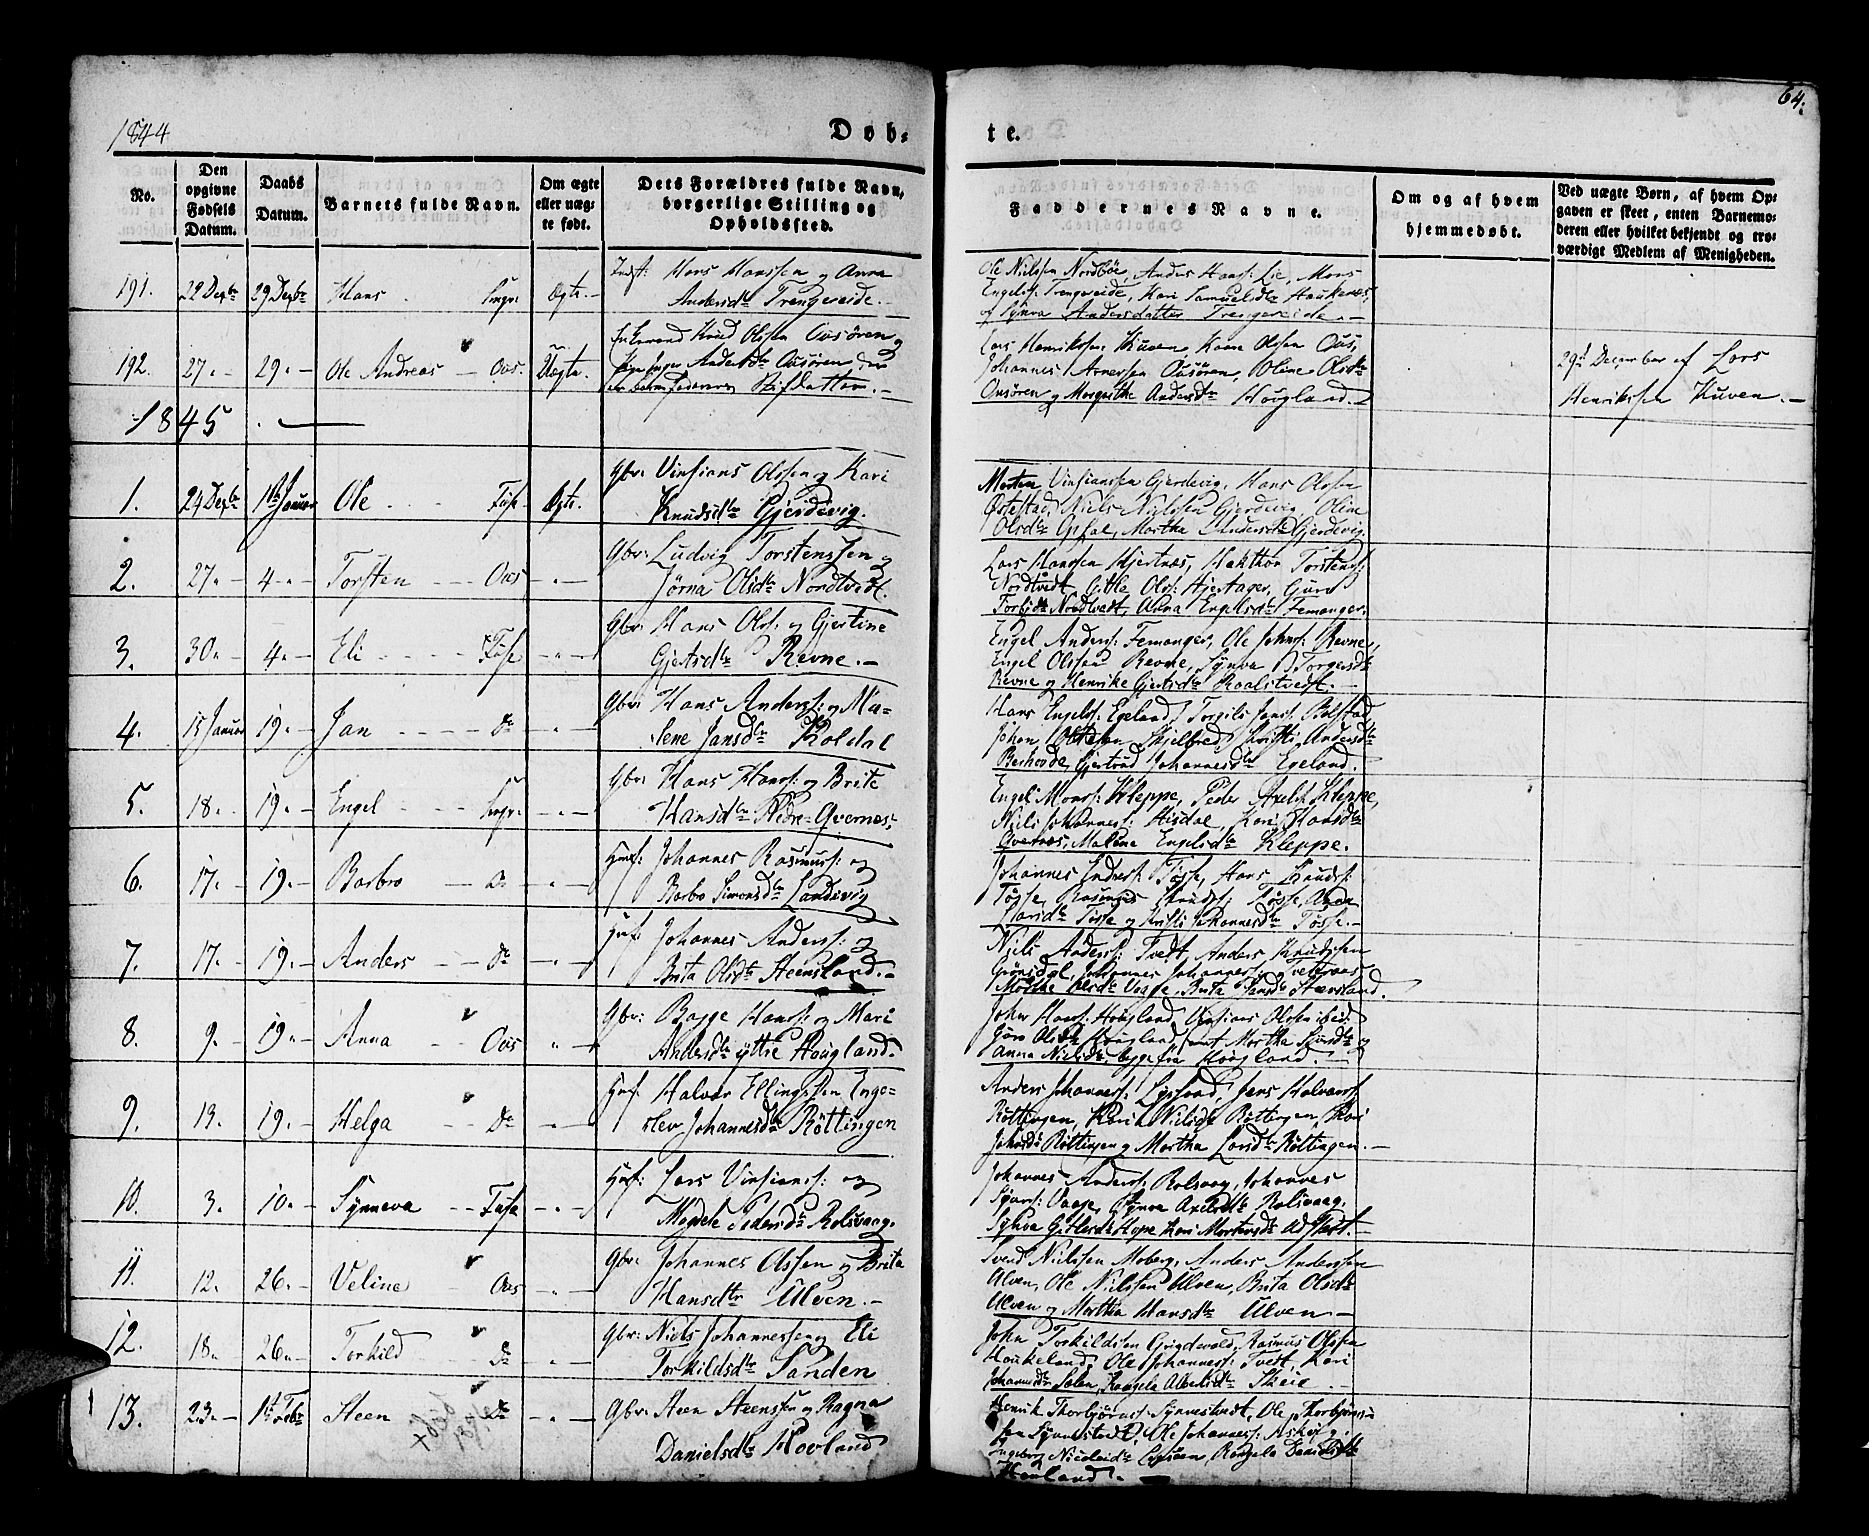 1844
Døb-
te.
64.
No.
Den opgivne Fødsels Datum.
Daabs Datum.
Barnets fulde Navn.
Om ægte eller uægte født.
Dets Forældres fulde Navn, borgerlige Stilling og Opholdssted.
Faddernes Navne.
Om og af hvem hjemmedøbt.
Ved uægte Børn, af hvem Opgaven er skeet, enten Barnemoderen eller hvilket bekjendt og troværdige Medlem af Menigheden.
191. 22 Decbr 29 Decbr Hans Ægte.
Hans Hanssen og Anna
Andersdtr Trengereide.
Ole Nielssen Nordbøe, Anders Hanss: Lie, Mons
Engelss: Trengereide, Kari Samuelsdtr Haukenæs,
og Synva Andersdatter Trengereide.
192. 27. 29. Ole Andreas Ous. Uægte.
Enkemand Knud Olssen Ousøren og
Pige Andersdtr Ousøren
Lars Henrikssen Kuven, Olssen Ous,
Johannes Arnessen Ousøren, Oline Olsdtr
Ousøren og Margrethe Andersdtr Hougland.
29d December af Lars
Henrikssen Kuven.
1845
1. 24 Decbr 1st Januar Ole Fuse Ægte.
Gbr: Vinsians Olssen og Kari
Knudsdtr Gjerdevig.
Morten Vinsianssen Gjerdevig, Hans Olssen
Østestad, Niels Nielssen Gjerdevig, Oline
Olsdtr Opsal, Martha Andersdtr Gjerdevig.
2. 27. 4. Torsten Ous
Gbr: Ludvig Torstenssen og
Jørna Olsdtr Nordtvedt.
Lars Hanssen Hjertnæs, Torstens:
Nordtvedt, Gitle Ols: Hjertager, Guro
Nordtvedt, Anna Engelsdtr Femanger.
3. 30. 4. Eli Fuse
Gbr: Hans Ols: og Gjertine
Gjertsdtr Revne.
Engel Anders: Femanger, Ole Johns: Revne,
Engel Olssen Revne, Synva Torgersdtr
Revne og Henrike Gjertsdtr
4. 15 Januar 19. Jan Do
Gbr: Hans Anders: og Ma-
lene Jansdtr Koldal
Hans Engels: Egeland, Torgils Jans: Bolstad,
Johan Skjelbred, Kristi Andersdtr
Berhovde, Gjertrud Johannesdtr Egeland.
5. 18. 19. Engel
Gbr: Hans Hans: og Brite
Hansdtr Nedre-Qvernæs,
Engel Mons: Kleppe, Peder Axels: Kleppe,
Niels Johannes: Hisdal, Kari Hansdtr
Qvernæs, Malena Engelsdtr Kleppe.
6. 17. 19. Barbro Do
Husf: Johannes Rasmus: og
Barbro Simonsdtr Sandvig
Johannes Endres: Tøsse, Hans Knuds:
Tøsse, Rasmus Knuds: Tøsse,
Tøsse og Kristi Johannesdtr Tøsse.
7. 17. 19. Anders Do
Husf: Johannes Anders: og
Brita Olsdtr Steensland.
Niels Anders: Tvedt, Anders Knudssen
Grønsdal, Johannes Johannes: Tveteraas
Olsdtr Vaage, Brita Jansdtr Steensland.
8. 9. 19. Anna Ous
Gbr: Bagge Hans: og Mari
Andersdtr yttre Hougland.
John Hans: Hougland, Vinsians Olssen ibid:
Olsdtr Hougland, samt Martha og
Anna Nielsdtr, begge fra Hougland.
9. 13. 19. Helga Do
Husf: Halvor Ellingssen Inge-
lev Johannesdtr Røttingen
Anders Johannes: Lysland, Jens Halvors:
Røttingen, Kari Nielsdtr Røttingen, Kari
Johansdtr Røttingen og Martha Larsdtr Røttingen.
10. 3. 10. Synneva Fuse
Husf: Lars Vinsians: og
Magdele Pedersdtr Rolsvaag.
Johannes Anders: Rolsvaag, Johannes
Vaage, Synva Axelsdtr Rolsvaag,
Synva Hope Kari Mortensdtr
11. 12. 26. Veline Ous
Gbr: Johannes Olssen og Brita
Hansdtr Ulven.
Svend Nielssen Moberg, Anders Anderssen
Ulven, Ole Nielssen Ulven, Brita Olsdtr
Ulven og Martha Hansdtr Ulven
12. 18. 26. Torkild Do
Gbr: Niels Johannessen og Eli
Torkildsdtr Sanden
John Torkildssen Rasmus Olssen
Haukeland, Ole Johannes: Tvedt, Kari
Sølen, Rangela Skeie
13. 23. 1st Febr Steen Do
Gbr: Steen Steenssen og Ragna
Danielsdtr Hovland
Henrik Thorbjørns: Synnestvedt, Ole Thorbjørns-
sen Synnestvedt, Ole Johannes: Askvig,
Ingeborg Nicolaidtr Rangela Danielsdtr
Hovland.